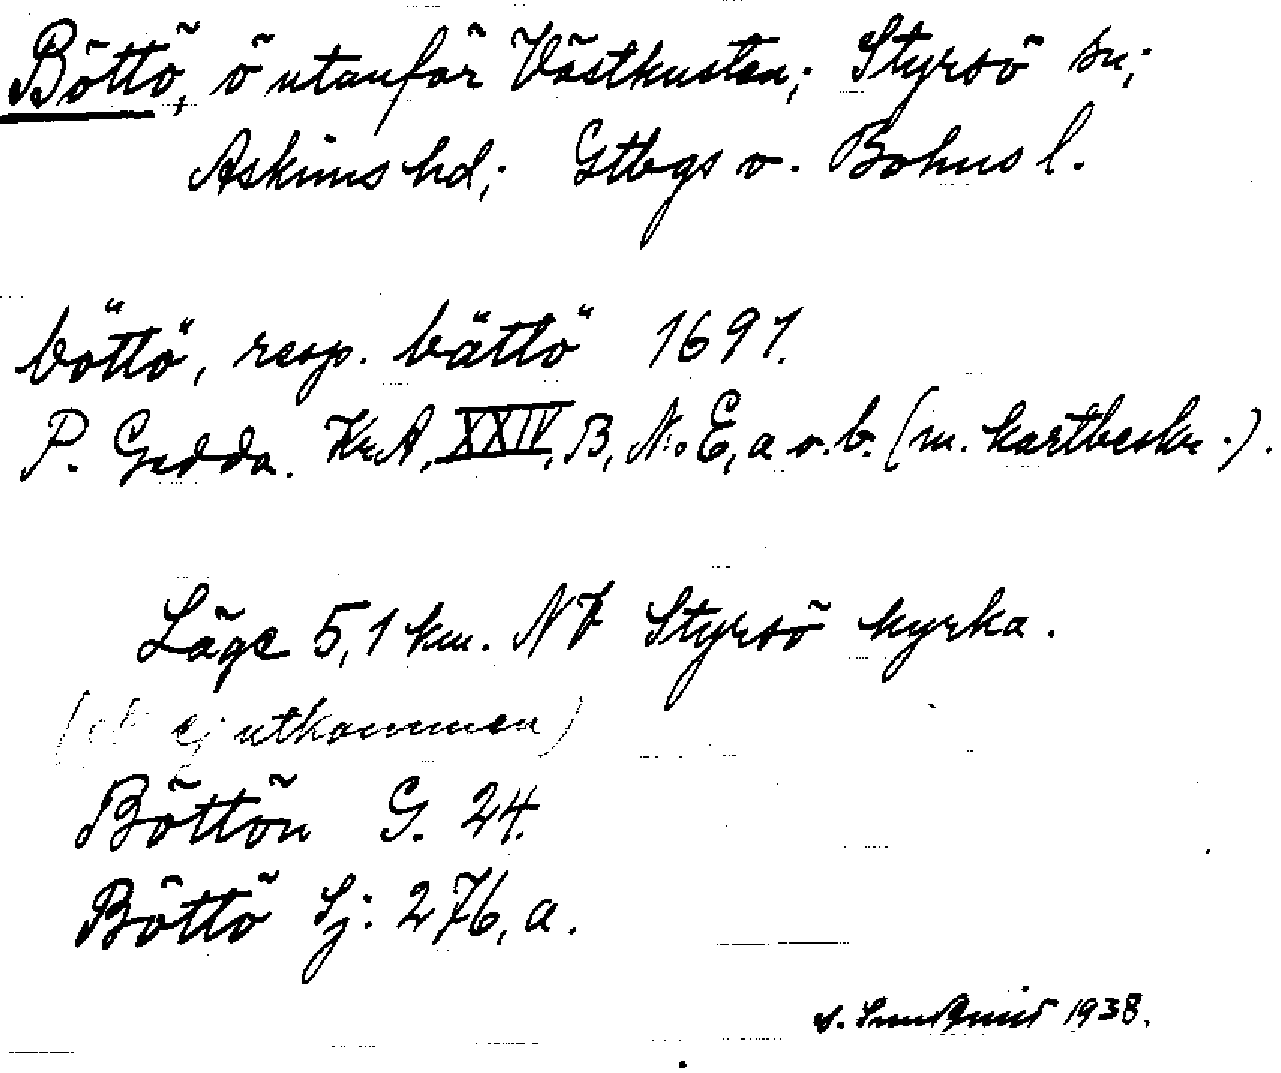 Böttö, ö utanför Västkusten; Styrsö sn;
Askims hd; Gtbgs o. Bohus l.
böttö, resp. bättö 1697.
P. Gedda. Kr.A, XXIV, B, N:o E, a o. b. (m. kartbeskr.).
Läge 5,1 km. NV Styrsö kyrka.
(ek ej utkommen)
Böttön G. 24.
Böttö Sj: 276, a.
1938.